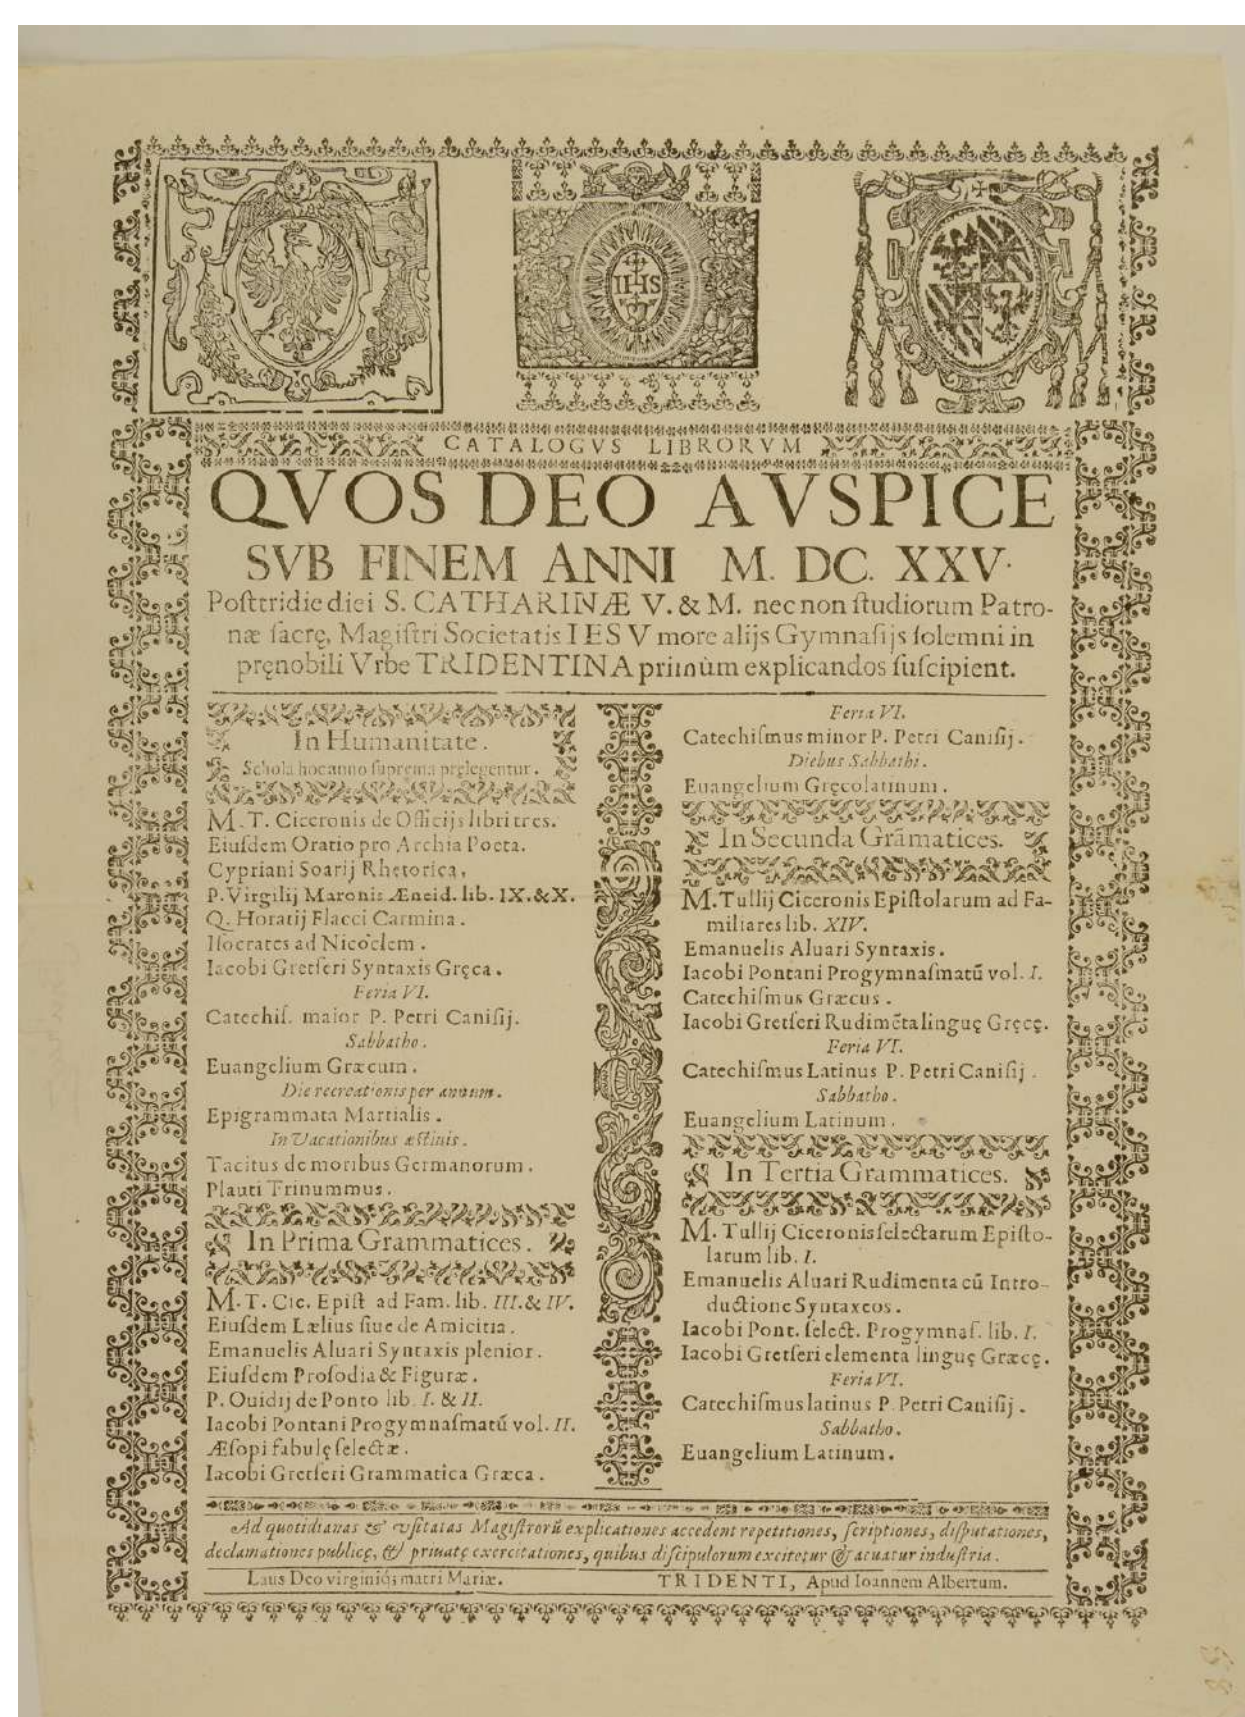 IHS
CATALOGVS LIBRORVM
QVOS DEO AVSPICE
SVB FINEM ANNI M. DC. XXV.
Poſttridie diei S. CATHARINÆ V. & M. nec non ſtudiorum Patro-
næ ſacrę, Magiſtri Societatis IESV more alijs Gymnaſijs ſolemni in
pręnobili Vrbe TRIDENTINA primùm explicandos ſuſcipient.
In Humanitate.
Schola hoc anno ſuprema pręlegentur.
M. T. Ciceronis de Officijs libri tres.
Eiuſdem Oratio pro Archia Poeta.
Cypriani Soarij Rhetorica,
P. Virgilij Maronis Æneid. lib. IX. & X.
Q. Horatij Flacci Carmina.
Iſocrates ad Nicoclem.
Iacobi Gretſeri Syntaxis Gręca.
Feria VI.
Catechiſ. maior P. Petri Caniſij.
Sabbatho.
Euangelium Græcum.
Die recreationis per annum.
Epigrammata Martialis.
In Vacationibus æſtiuis.
Tacitus de moribus Germanorum.
Plauti Trinummus.
In Prima Grammatices.
M. T. Cic. Epiſt ad Fam. lib. III. & IV.
Eiuſdem Lælius ſiue de Amicitia.
Emanuelis Aluari Syntaxis plenior.
Eiuſdem Proſodia & Figuræ.
P. Ouidij de Ponto lib. I. & II.
Iacobi Pontani Progymnaſmatũ vol. II.
Æſopi fabulę ſelectæ.
Iacobi Gretſeri Grammatica Græca.
Feria VI.
Catechiſmus minor P. Petri Caniſij.
Diebus Sabbathi.
Euangelium Gręcolatinum.
In Secunda Grãmatices.
M. Tullij Ciceronis Epiſtolarum ad Fa-
miliares lib. XIV.
Emanuelis Aluari Syntaxis.
Iacobi Pontani Progymnaſmatũ vol. I.
Catechiſmus Græcus.
Iacobi Gretſeri Rudimẽta linguę Gręcę.
Feria VI.
Catechiſmus Latinus P. Petri Caniſij.
Sabbatho.
Euangelium Latinum.
In Tertia Grammatices.
M. Tullij Ciceronis ſelectarum Epiſto-
larum lib. I.
Emanuelis Aluari Rudimenta cũ Intro-
ductione Syntaxeos.
Iacobi Pont. ſelect. Progymnaſ. lib. I.
Iacobi Gretſeri elementa linguę Græcę.
Feria VI.
Catechiſmus latinus P. Petri Caniſij.
Sabbatho.
Euangelium Latinum.
Ad quotidianas & vſitatas Magiſtrorũ explicationes accedent repetitiones, ſcriptiones, diſputationes,
declamationes publicę, & priuatę exercitationes, quibus diſcipulorum excitetur & acuatur induſtria.
Laus Deo virginiq; matri Mariæ.
TRIDENTI, Apud Ioannem Albertum.